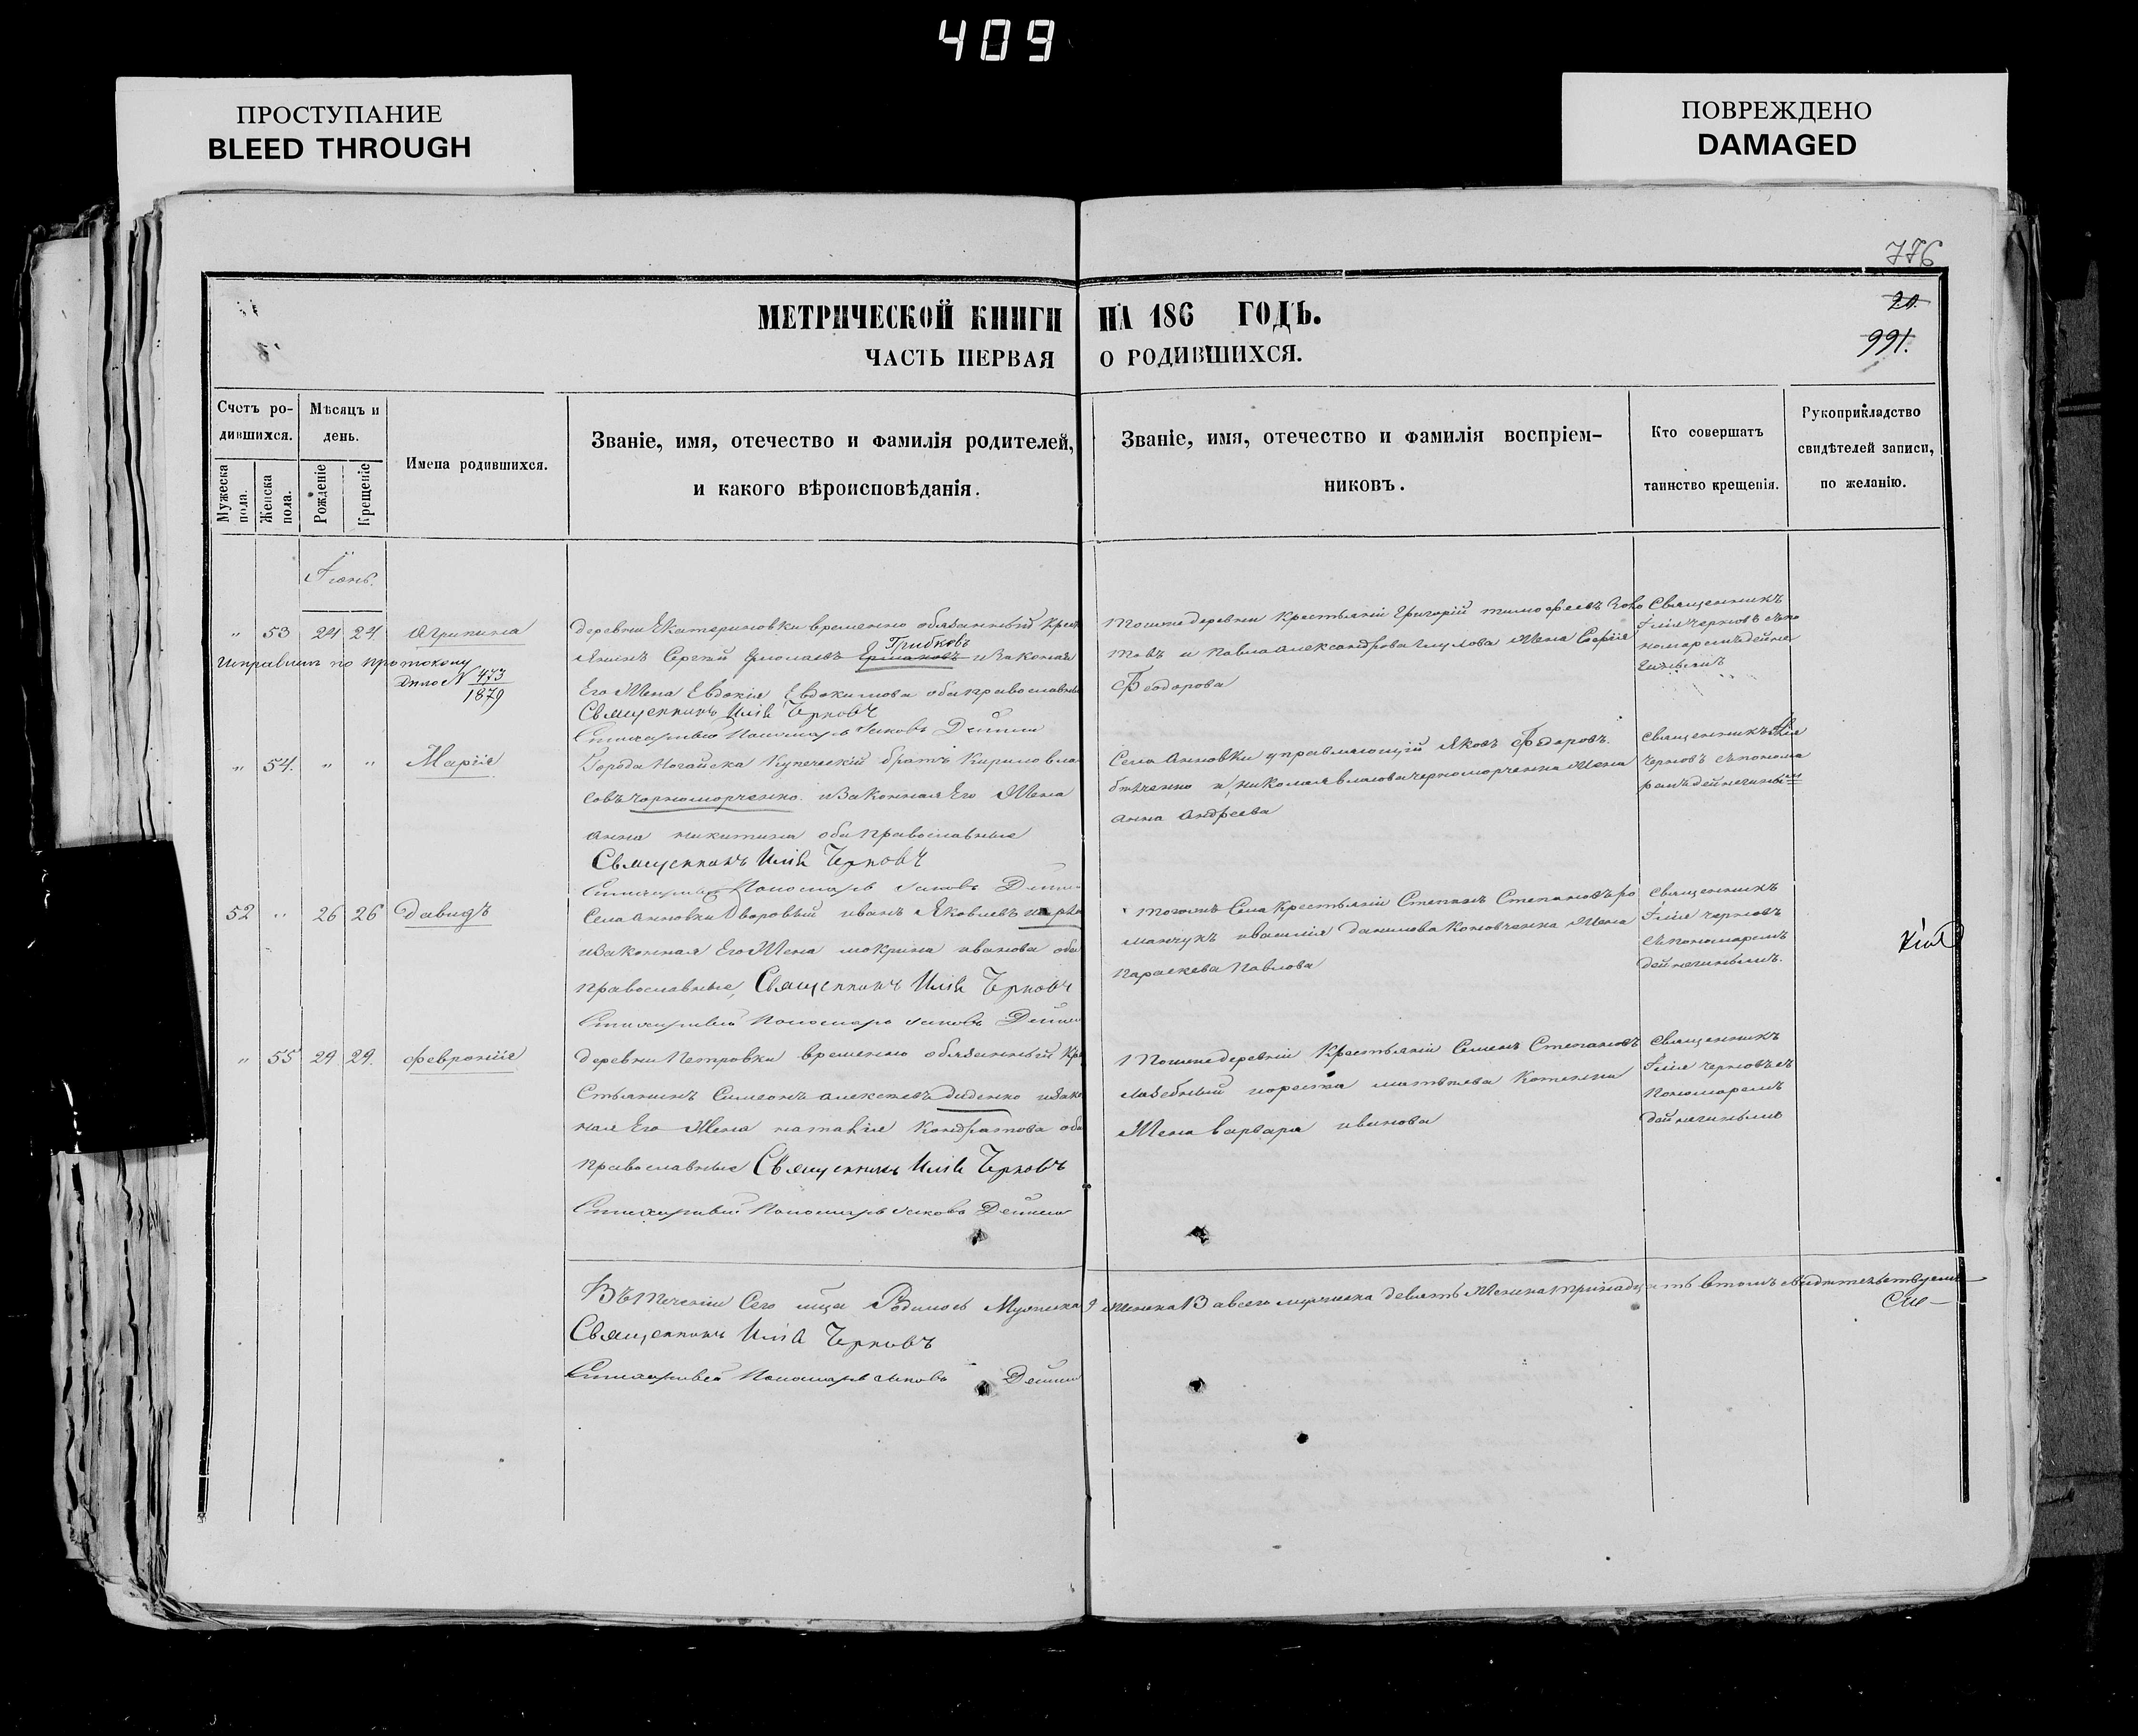 409
ПРОСТУПАНИЕ
BLEED THROUGH
ПОВРЕЖДЕНО
DAMAGED
776
МЕТРИЧЕСКОЙ КНИГИ НА 186 ГОДЪ.
20.
991.
ЧАСТЬ ПЕРВАЯ О РОДИВШИХСЯ.
Счетъ ро-
дившихся.
Мужеска
пола.
Женска
пола.
Мѣсяцъ и
день.
Рожденіе
Крещеніе
Имена родившихся.
Званіе, имя, отечество и фамилія родителей,
и какого вѣроисповѣданія.
Званіе, имя, отечество и фамилія воспріем-
никовъ.
Кто совершатъ
таинство крещенія.
Рукоприкладство
свидѣтелей записи,
по желанію.
Іюнь.
" 53 24 24 Агрипина
Исправлен по протоколу
дѣло № 473
1879
деревни Екатериновки временно обязанный Крест
Грибковъ
янинъ Сергѣй Ермолаевъ Ермаковъ и Законая
Его Жена Евдокія Евдокимова оба православные
Священникъ Илія Черновъ
Стихарный Пономарь Іаковъ
Тойже деревни Крестьяній Григорій тимофеевъ
товъ и Павла Александрова Жена Софія
Феодорова
Священникъ
Іілія Черновъ съ по
номаремъ Дейне
" 54. " " Марія
Города Ногайска Купеческій братъ Кирило вла
совъ чорноморченко. и Законная Его Жена
Анна никитина оба Православные
Священникъ Илія Черновъ
Стихарный Пономарь Іаковъ
Села Анновки управляющій Яковъ Федоровъ.
и николая власова черноморченка Жена
Анна Андреева
Священникъ Іілія
Черновъ съ понома
ремъ дейнегинымъ
52 " 26 26 Давидъ
Села Анновки Дворовый иванъ Яковлевъ
и Законная Его Жена мокрина иванова оба
православные, Священникъ Илія Черновъ
Стихарный Пономарь Іаковъ
Тогожъ Села Крестьяній Степанъ Степановъ ро
манчукъ и василія данилова Коновченка Жена
Параскева Павлова
Священникъ
Іілія Черновъ
съ пономаремъ
дейнегинымъ.
" 55 29. 29. Февронія
деревни Петровки временно обязанный Кре
стьянинъ Симеонъ алексѣевъ диденко и Зако
ная Его Жена наталія Кондратова оба
православные Священникъ Илія Черновъ
Стихарный Пономарь Іаковъ
Тойже деревни Крестьяній Семенъ Степановъ
матвѣева Котенка
Жена варвара иванова
Священникъ
Іілія Черновъ съ
Пономаремъ
дейнегинымъ
Въ течении Сего мца Родилось Мужеска 9 женска 13 а всего мужеска девять Женска тринадцать втомъ свидѣтельствуемъ
Священникъ Илія Черновъ
Стихарный Пономарь Іаковъ